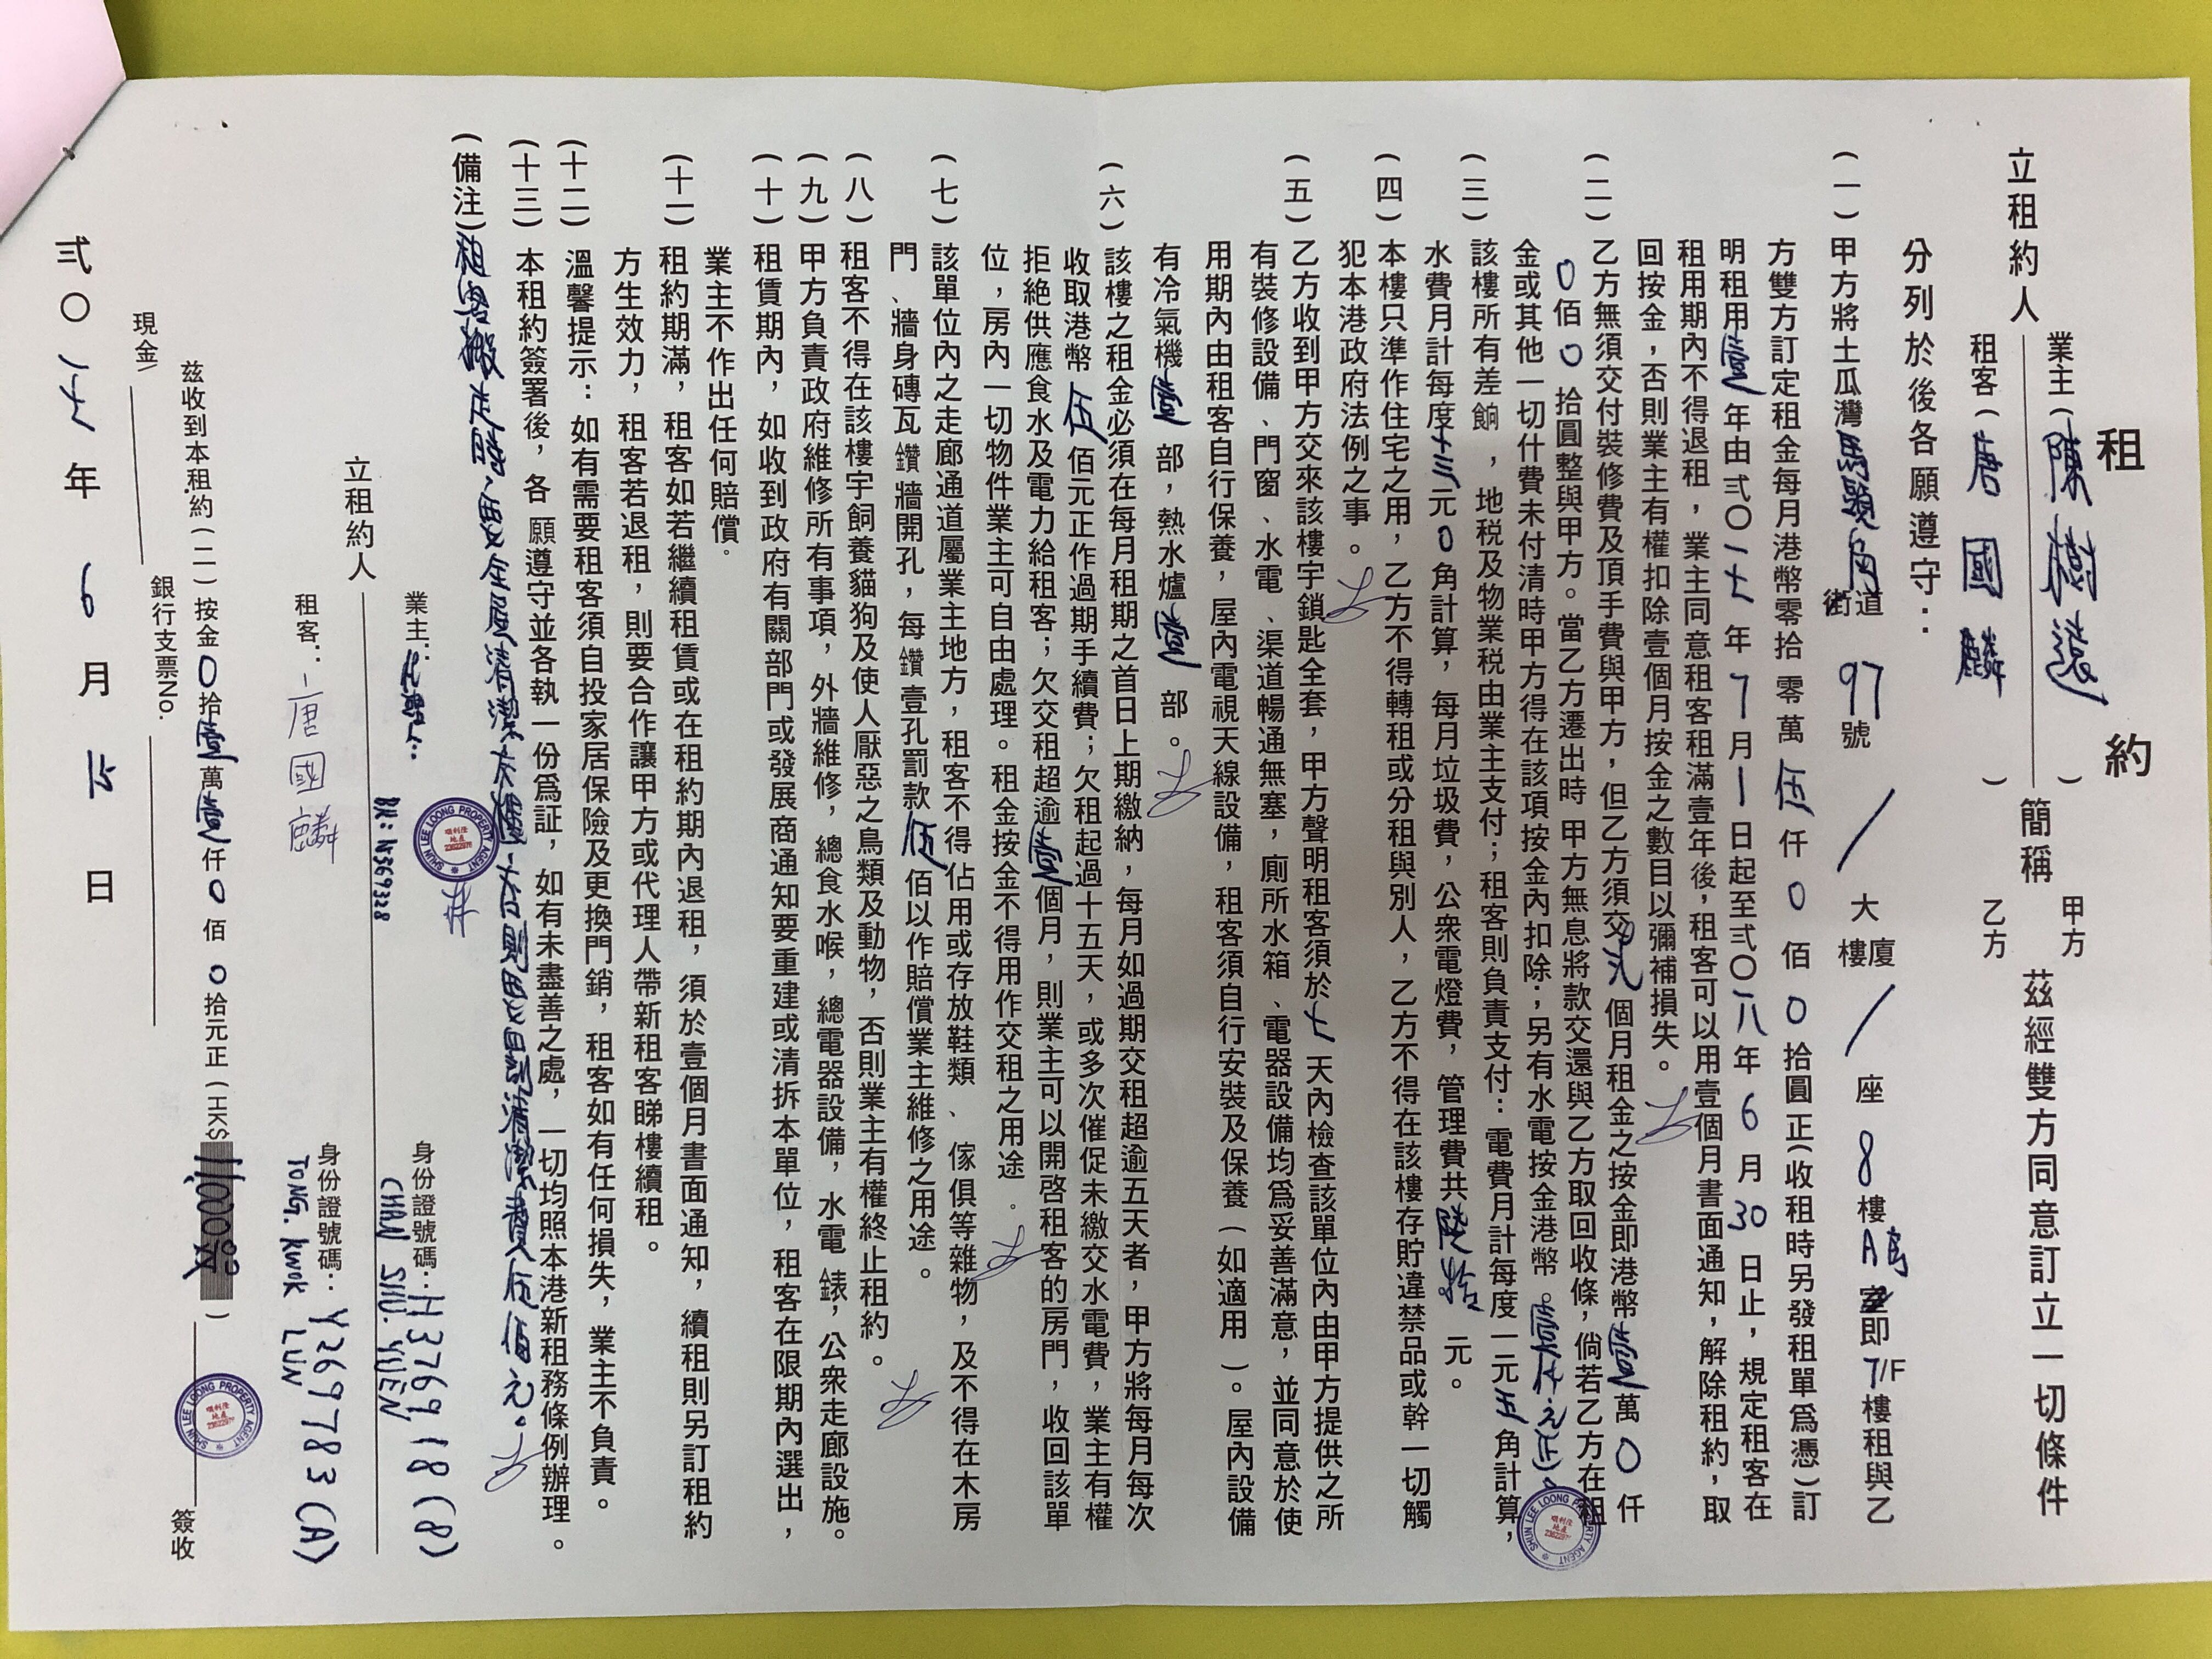 租約
立租約人
業主(陳樹遠)
租客(唐國麟)
簡稱
甲方
乙方
茲經雙方同意訂立一切條件
分列於後各願遵守：
(一)甲方將土瓜灣馬頭角街道97號/大樓廈/座8樓A房室即7/F樓租與乙
方雙方訂定租金每月港幣零拾零萬伍仟0佰0拾圓正(收租時另發租單爲憑)訂
明租用壹年由弍〇一七年7月1日起至弍〇一八年6月30日止，規定租客在
租用期內不得退租，業主同意租客租滿壹年後，租客可以用壹個月書面通知，解除租約，取
回按金，否則業主有權扣除壹個月按金之數目以彌補損失。
(二)乙方無須交付裝修費及頂手費與甲方，但乙方須交弍個月租金之按金即港幣壹萬0仟
0佰0拾圓整與甲方。當乙方遷出時甲方無息將款交還與乙方取回收條，倘若乙方在租
金或其他一切什費未付清時甲方得在該項按金內扣除；另有水電按金港幣。壹仟元正。
(三)該樓所有差餉，地税及物業税由業主支付；租客則負責支付：電費月計每度一元五角計算，
水費月計每度十三元0角計算，每月垃圾費，公衆電燈費，管理費共陸拾元。
(四)本樓只準作住宅之用，乙方不得轉租或分租與別人，乙方不得在該樓存貯違禁品或幹一切觸
犯本港政府法例之事。
(五)乙方收到甲方交來該樓宇鎖匙全套，甲方聲明租客須於七天內檢查該單位內由甲方提供之所
有裝修設備、門窗、水電、渠道暢通無塞，廁所水箱、電器設備均爲妥善滿意，並同意於使
用期內由租客自行保養，屋內電視天線設備，租客須自行安裝及保養(如適用)。屋內設備
有冷氣機壹部，熱水爐壹部。
(六)該樓之租金必須在每月租期之首日上期繳納，每月如過期交租超逾五天者，甲方將每月每次
收取港幣伍佰元正作過期手續費；欠租起過十五天，或多次催促未繳交水電費，業主有權
拒絶供應食水及電力給租客；欠交租超逾壹個月，則業主可以開啓租客的房門，收回該單
位，房內一切物件業主可自由處理。租金按金不得用作交租之用途。
(七)該單位內之走廊通道屬業主地方，租客不得佔用或存放鞋類、傢俱等雜物，及不得在木房
門、牆身磚瓦鑽牆開孔，每鑽壹孔罰款伍佰以作賠償業主維修之用途。
(八)租客不得在該樓宇飼養貓狗及使人厭惡之鳥類及動物，否則業主有權終止租約。
(九)甲方負責政府維修所有事項，外牆維修，總食水喉，總電器設備，水電錶，公衆走廊設施。
(十)租賃期內，如收到政府有關部門或發展商通知要重建或清拆本單位，租客在限期內選出，
業主不作出任何賠償。
(十一)租約期滿，租客如若繼續租賃或在租約期內退租，須於壹個月書面通知，續租則另訂租約
方生效力，租客若退租，則要合作讓甲方或代理人帶新租客睇樓續租。
(十二)溫馨提示：如有需要租客須自投家居保險及更換門銷，租客如有任何損失，業主不負責。
(十三)本租約簽署後，各願遵守並各執一份爲証，如有未盡善之處，一切均照本港新租務條例辦理。
(備注)租客搬走時，要全屋清潔，否則要罰清潔費伍佰元。
立租約人
業主：代理人：
SHUN LEE LOONG PROPERTY AGENT
順利隆
地產
23622978
身份證號碼：H376918(8)
CHAN SHU YUEN
租客：唐國麟
身份證號碼：Y269783(A)
TONG KWOK LUN
茲收到本租約(二)按金0拾壹萬壹仟0佰0拾元正(HK$11000元)
現金\
銀行支票No.
簽收
弍〇一七年6月15日